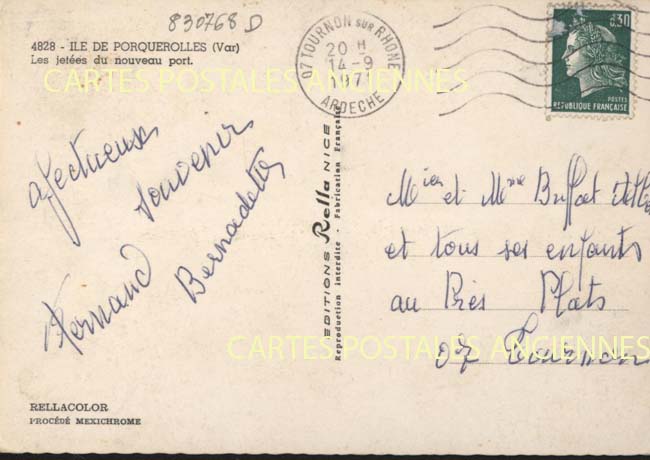 830768 D
4828 - ILE DE PORQUEROLLES (Var)
Les jetées du nouveau port.
CARTES POSTALES ANCIENNES
07 TOURNON SUR RHONE
20 H
14 - 9
ARDECHE
0.30
POSTES
REPUBLIQUE FRANÇAISE
afectueuse
souvenir
Fernand
Bernadette
EDITIONS Rella NICE
Reproduction interdite - Fabrication Française
et Mme
et tous ses enfants
au Près Plats
07 Tournon
CARTES POSTALES ANCIENNES
RELLACOLOR
PROCÉDÉ MEXICHROME